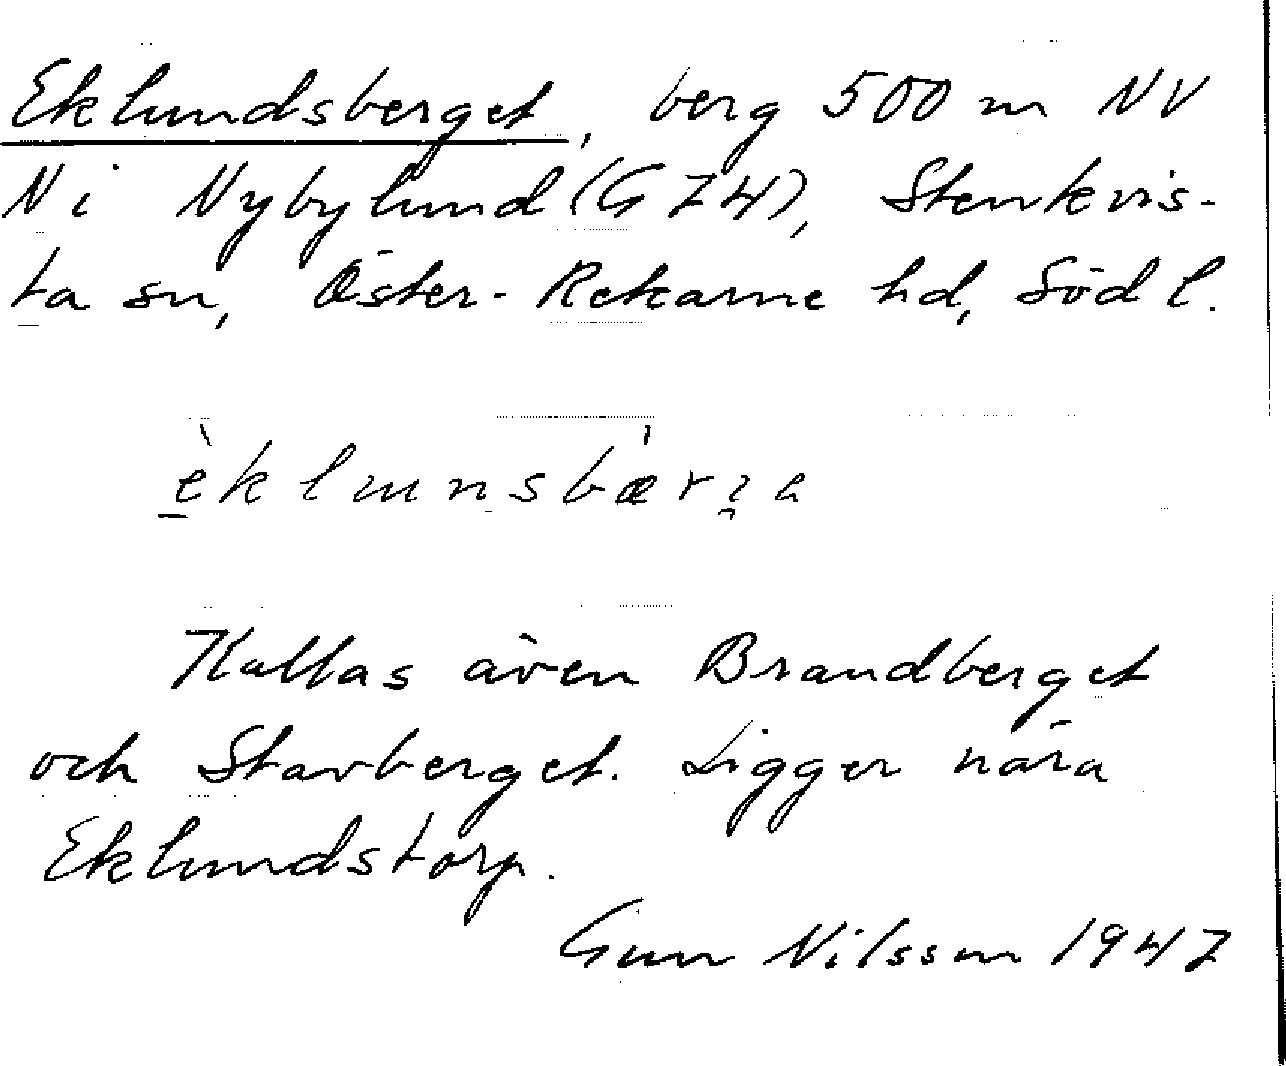 Eklundsberget, berg 500 m NV
N i Nybylund (G 74), Stenkvis-
ta sn, Öster-Rekarne hd, Södl.
Kallas även Brandberget
och Stavberget. Ligger nära
Eklundstorp.
Gun Nilsson 1947